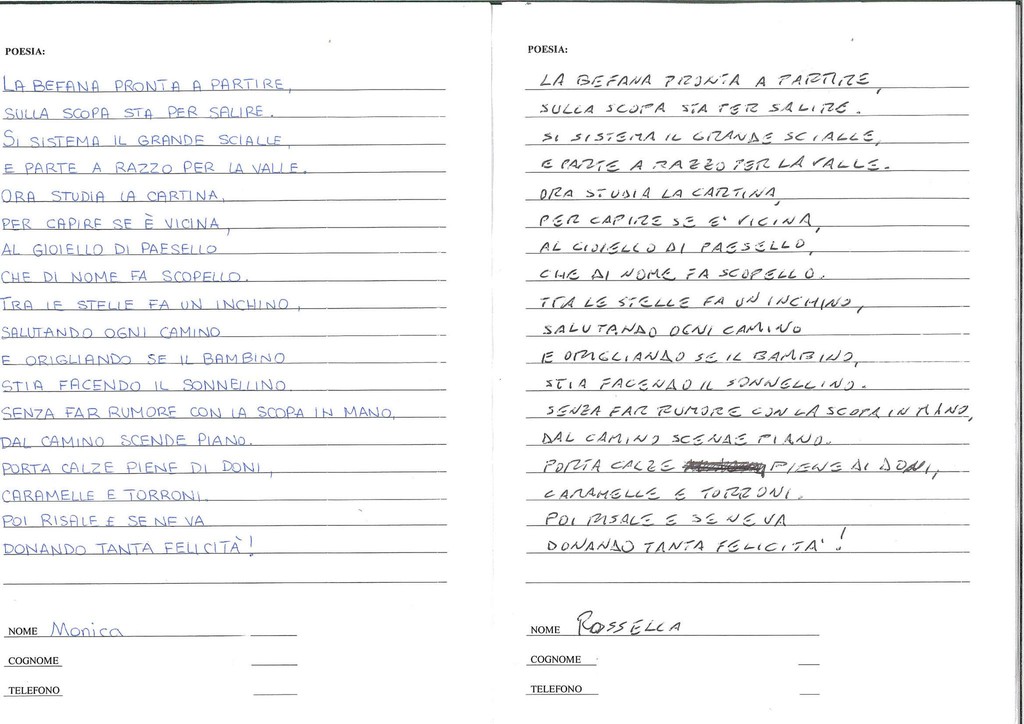 POESIA:
LA BEFANA PRONTA A PARTIRE,
SULLA SCOPA STA PER SALIRE.
SI SISTEMA IL GRANDE SCIALLE,
E PARTE A RAZZO PER LA VALLE.
ORA STUDIA LA CARTINA,
PER CAPIRE SE È VICINA,
AL GIOIELLO DI PAESELLO
CHE DI NOME FA SCOPELLO.
TRA LE STELLE FA UN INCHINO,
SALUTANDO OGNI CAMINO
E ORIGLIANDO SE IL BAMBINO
STIA FACENDO IL SONNELLINO.
SENZA FAR RUMORE CON LA SCOPA IN MANO,
DAL CAMINO SCENDE PIANO.
PORTA CALZE PIENE DI DONI,
CARAMELLE E TORRONI.
POI RISALE E SE NE VA
DONANDO TANTA FELICITÀ!
NOME Monica
COGNOME
TELEFONO
POESIA:
LA BEFANA PRONTA A PARTIRE,
SULLA SCOPA STA PER SALIRE.
SI SISTEMA IL GRANDE SCIALLE,
E PARTE A RAZZO PER LA VALLE.
ORA STUDIA LA CARTINA,
PER CAPIRE SE E' VICINA,
AL GIOIELLO DI PAESELLO,
CHE DI NOME FA SCOPELLO.
TRA LE STELLE FA UN INCHINO,
SALUTANDO OGNI CAMINO
E ORIGLIANDO SE IL BAMBINO,
STIA FACENDO IL SONNELLINO.
SENZA FAR RUMORE CON LA SCOPA IN MANO,
DAL CAMINO SCENDE PIANO.
PORTA CALZE PIENE DI DONI,
CARAMELLE E TORRONI.
POI RISALE E SE NE VA
DONANDO TANTA FELICITA'!
NOME ROSSELLA
COGNOME
TELEFONO